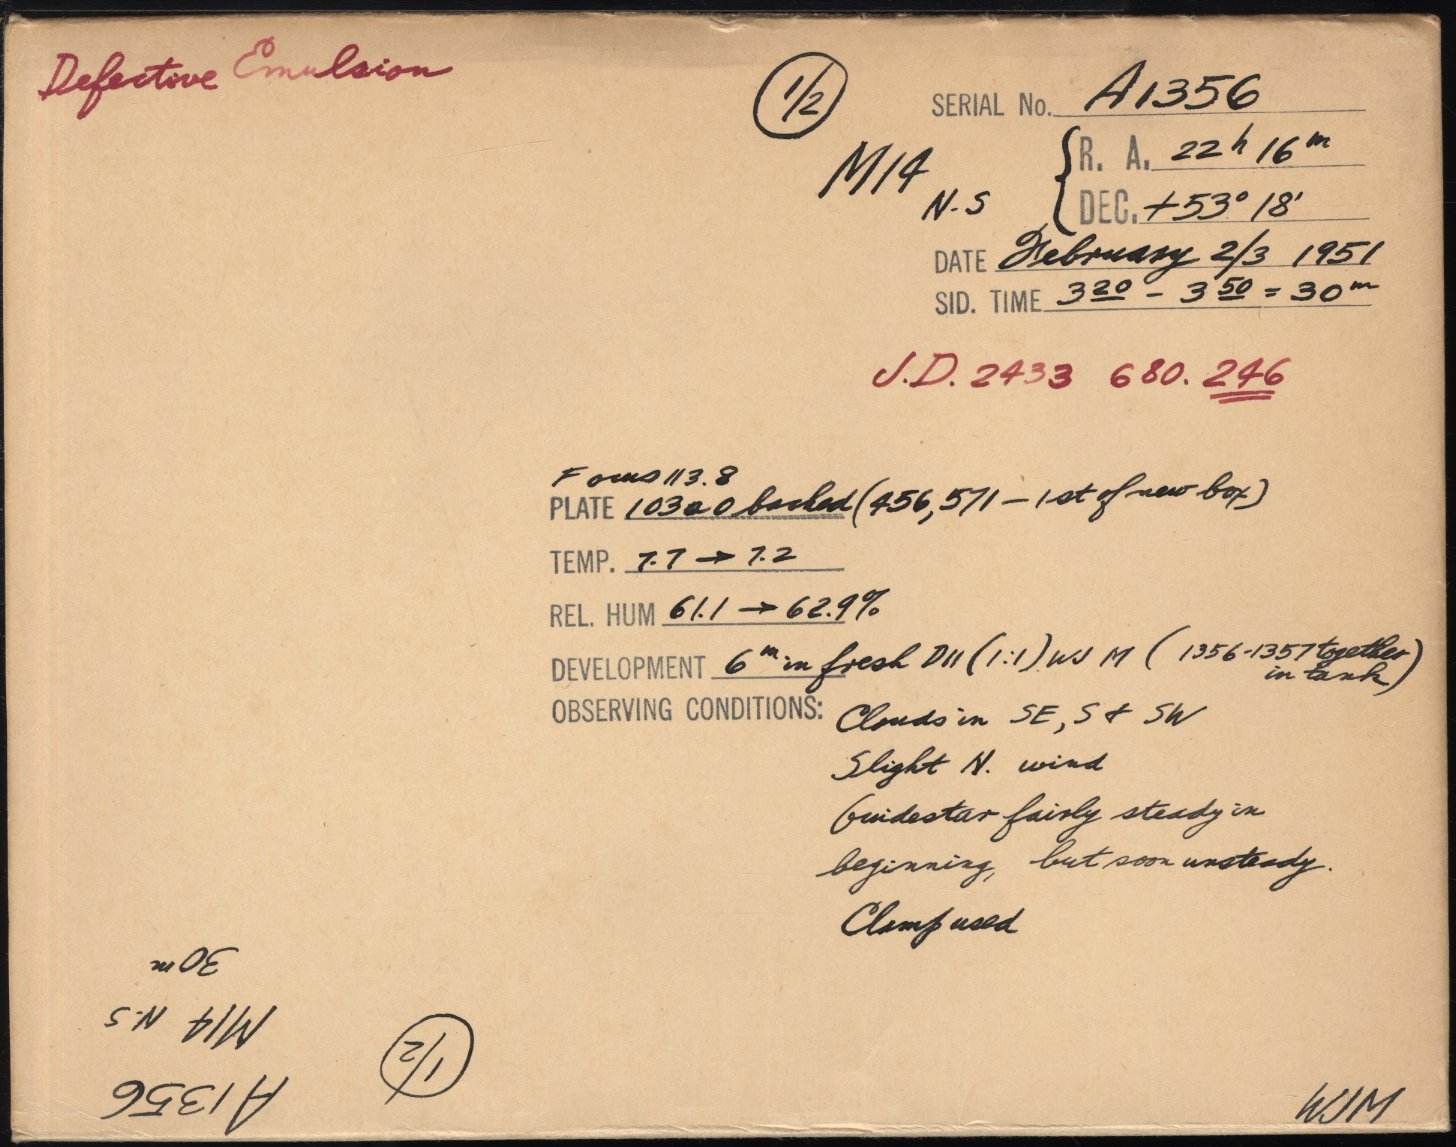 Defective Emulsion
1/2
SERIAL No. A1356
M14 N-S
R. A. 22h 16m
DEC. +53° 18'
DATE February 2/3 1951
SID. TIME 3 20 - 3 50 = 30m
J.D. 2433 680.246
Focus 113.8
PLATE 103a O backed (456,571 - 1st of new box)
TEMP. 7.7 → 7.2
REL. HUM 61.1 → 62.9%
DEVELOPMENT 6m in fresh D11 (1:1) WJM (1356-1357 together in tank)
OBSERVING CONDITIONS: Clouds in SE, S & SW
Slight N. wind
Guidestar fairly steady in
beginning, but soon unsteady.
Clamp used
WJM
A1356
1/2
M14 N-S
30m